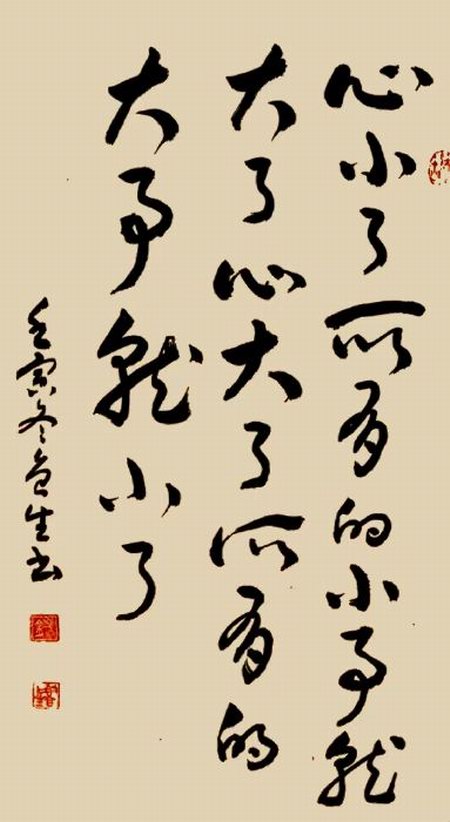 心小了所有的小事就
大了心大了所有的
大事就小了
壬寅冬生书